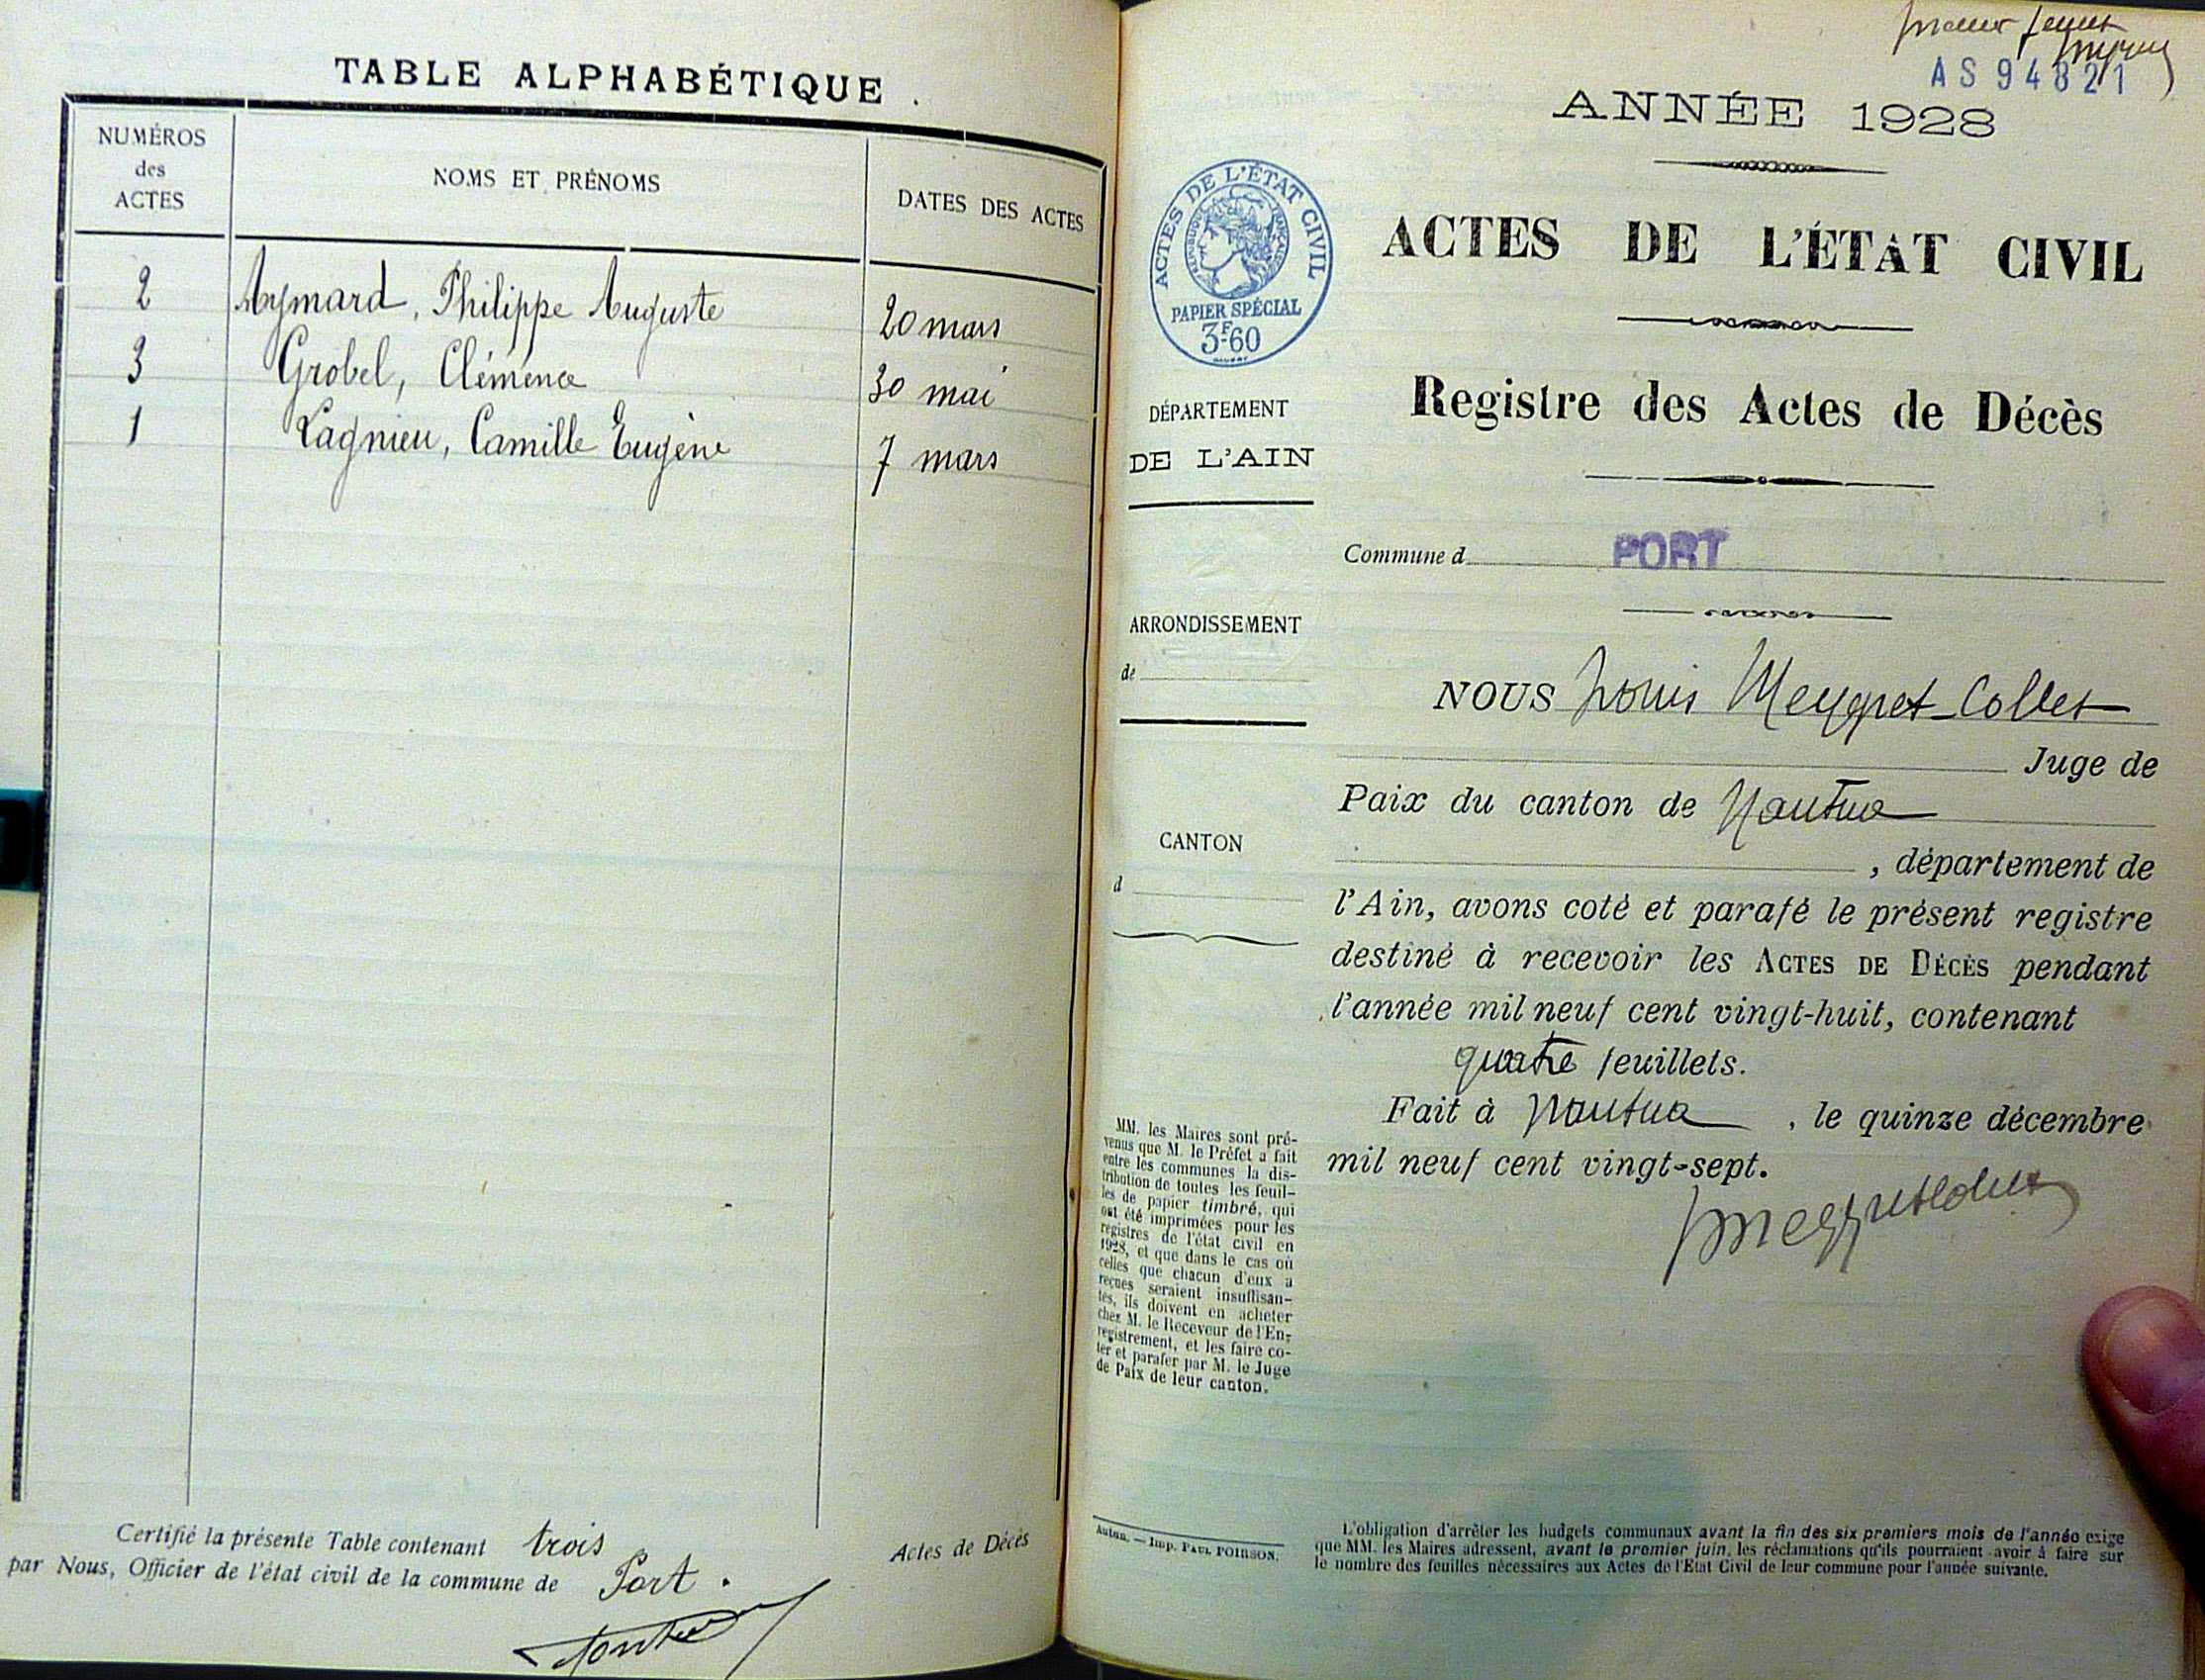 TABLE ALPHABÉTIQUE
NUMÉROS
des
ACTES
NOMS ET PRÉNOMS
DATES DES ACTES
2 Aymard, Philippe Auguste 20 mars
3 Grobel, Clémence 30 mai
1 Lagnieu, Camille Eugène 7 mars
Certifié la présente Table contenant trois Actes de Décès
par Nous, Officier de l'état civil de la commune de Port.
premier feuillet
AS94821
ANNÉE 1928
ACTES DE L'ÉTAT CIVIL
PAPIER SPÉCIAL
3F60
ACTES DE L'ÉTAT CIVIL
Registre des Actes de Décès
DÉPARTEMENT
DE L'AIN
Commune d PORT
ARRONDISSEMENT
de
CANTON
d
NOUS Louis Meygret-Collet
Juge de
Paix du canton de Nantua
, département de
l'Ain, avons coté et parafé le présent registre
destiné à recevoir les ACTES DE DÉCÈS pendant
l'année mil neuf cent vingt-huit, contenant
quatre feuillets.
Fait à Nantua , le quinze décembre
mil neuf cent vingt-sept.
MM. les Maires sont pré-
venus que M. le Préfet a fait
entre les communes la dis-
tribution de toutes les feuil-
les de papier timbré, qui
ont été imprimées pour les
registres de l'état civil en
1928, et que dans le cas où
celles que chacun d'eux a
reçues seraient insuffisan-
tes, ils doivent en acheter
chez M. le Receveur de l'En-
registrement, et les faire co-
ter et parafer par M. le Juge
de Paix de leur canton.
Autun. — Imp. PAUL POIRSON.
L'obligation d'arrêter les budgets communaux avant la fin des six premiers mois de l'année exige
que MM. les Maires adressent, avant le premier juin, les réclamations qu'ils pourraient avoir à faire sur
le nombre des feuilles nécessaires aux Actes de l'Etat Civil de leur commune pour l'année suivante.